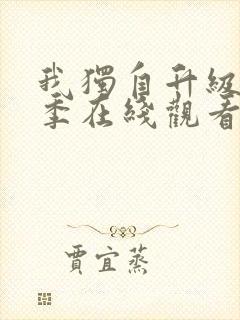 我獨自升級
季在綫觀看
賈宜蒸